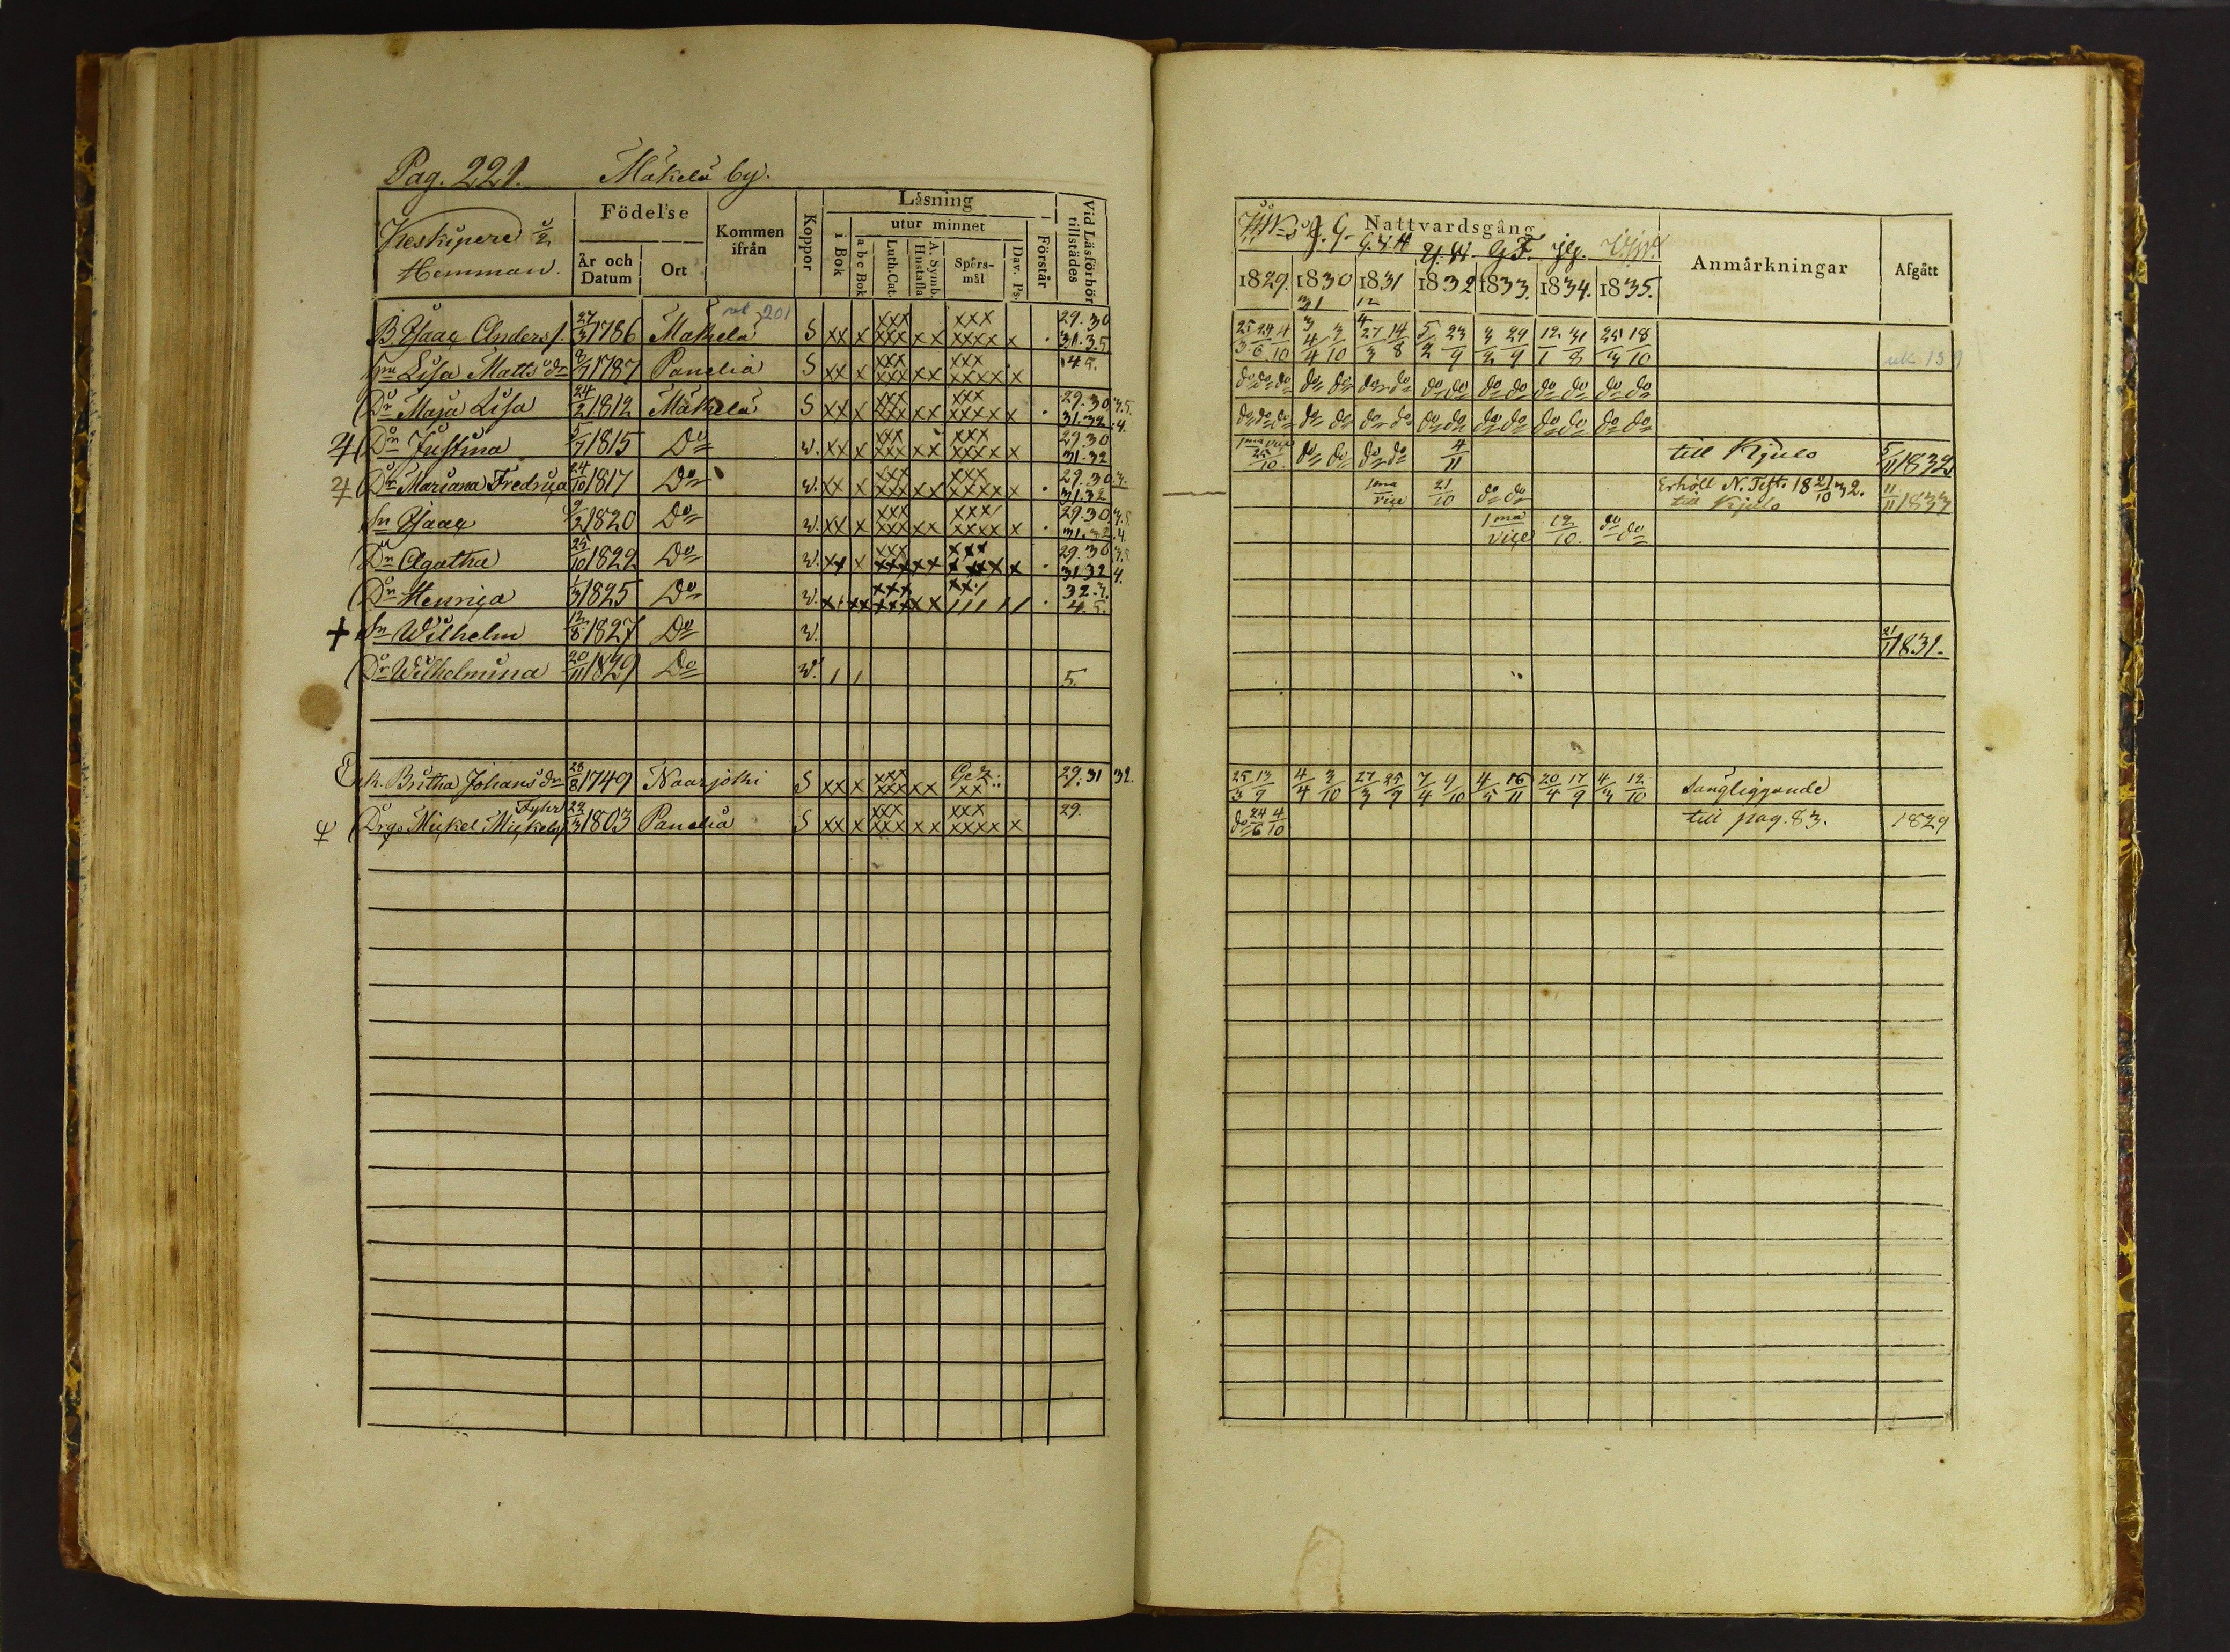 Pag. 221. Mäkelä by.
Keskipere 1/2 Hemman.
Födelse
År och Datum
Ort
Kommen ifrån
Koppor
Läsning
i Bok
utur minnet
a b c Bok
Luth. Cat.
A. Symb. Hustafla
Spörsmål
Dav. Ps.
Förstår
Vid Läsförhör tillstädes
201
B. Isaac Anders s. 27/3 1786 Mäkelä S xx x xxx xxx xx xxx xxxx x 29. 30 31. 35
Lisa Matts dr 8/7 1787 Panelia S xx x xxx xxx xx xxx xxxx x 45.
Dr Maja Lisa 24/2 1812 Mäkelä S xx x xxx xxx xx xxx xxxx x 29. 30 31. 32 3.5. 4.
Dr Justina 5/7 1815 Do v. xx x xxx xxx xx xxx xxxx x 29. 30 31. 32
Dr Mariana Fredrica 24/10 1817 Do v. xx x xxx xxx xx xxx xxxx x 29. 30 3. 31. 32
Sn Isaac 9/2 1820 Do v. xx x xxx xxx xx xxx xxxx x 29. 30 3.5. 31. 32. 4.
Dr Agatha 25/10 1822 Do v. xx x xxx xxx xx xxx xxxx x 29. 30 3.5. 31 32 4.
Dr Henrica 1/3 1825 Do v. 32. 3. 4. 5.
+ Sn Wilhelm 12/8 1827 Do v.
Dr Wilhelmina 20/11 1829 Do v. 5.
Enk. Britha Johans dr 28/8 1749 Naarjoki S xx x xxx xxx xx 29. 31 32.
Drg. Mickel Mickels s. Fyhr 29/3 1803 Panelia S xx x xxx xxx xx xxx xxxx x 29.
Nattvardsgång
Anmärkningar
Afgått
1829. 1830 1831 1832 1833. 1834. 1835.
25/3 24/6 4/10 4/4 3/10 27/3 14/8 5/2 23/9 3/2 29/9 12/1 31/8 25/3 18/10
do do do do do do do do do do do do do do do
do do do do do do do do do do do do do do do
1ma vice 25/10. do do do do 4/11 till Kjulo 5/11 1832
1ma vice 21/10 do do Erhöll N. Test. 18 21/10 32. till Kjulo 11/11 1833
1ma vice 12/10. do do
21/1 1831.
25/3 13/9 4/4 3/10 27/3 25/9 7/4 9/10 4/5 16/11 20/4 17/9 4/3 12/10 Sängliggande
do 24/6 4/10 till pag. 83. 1829